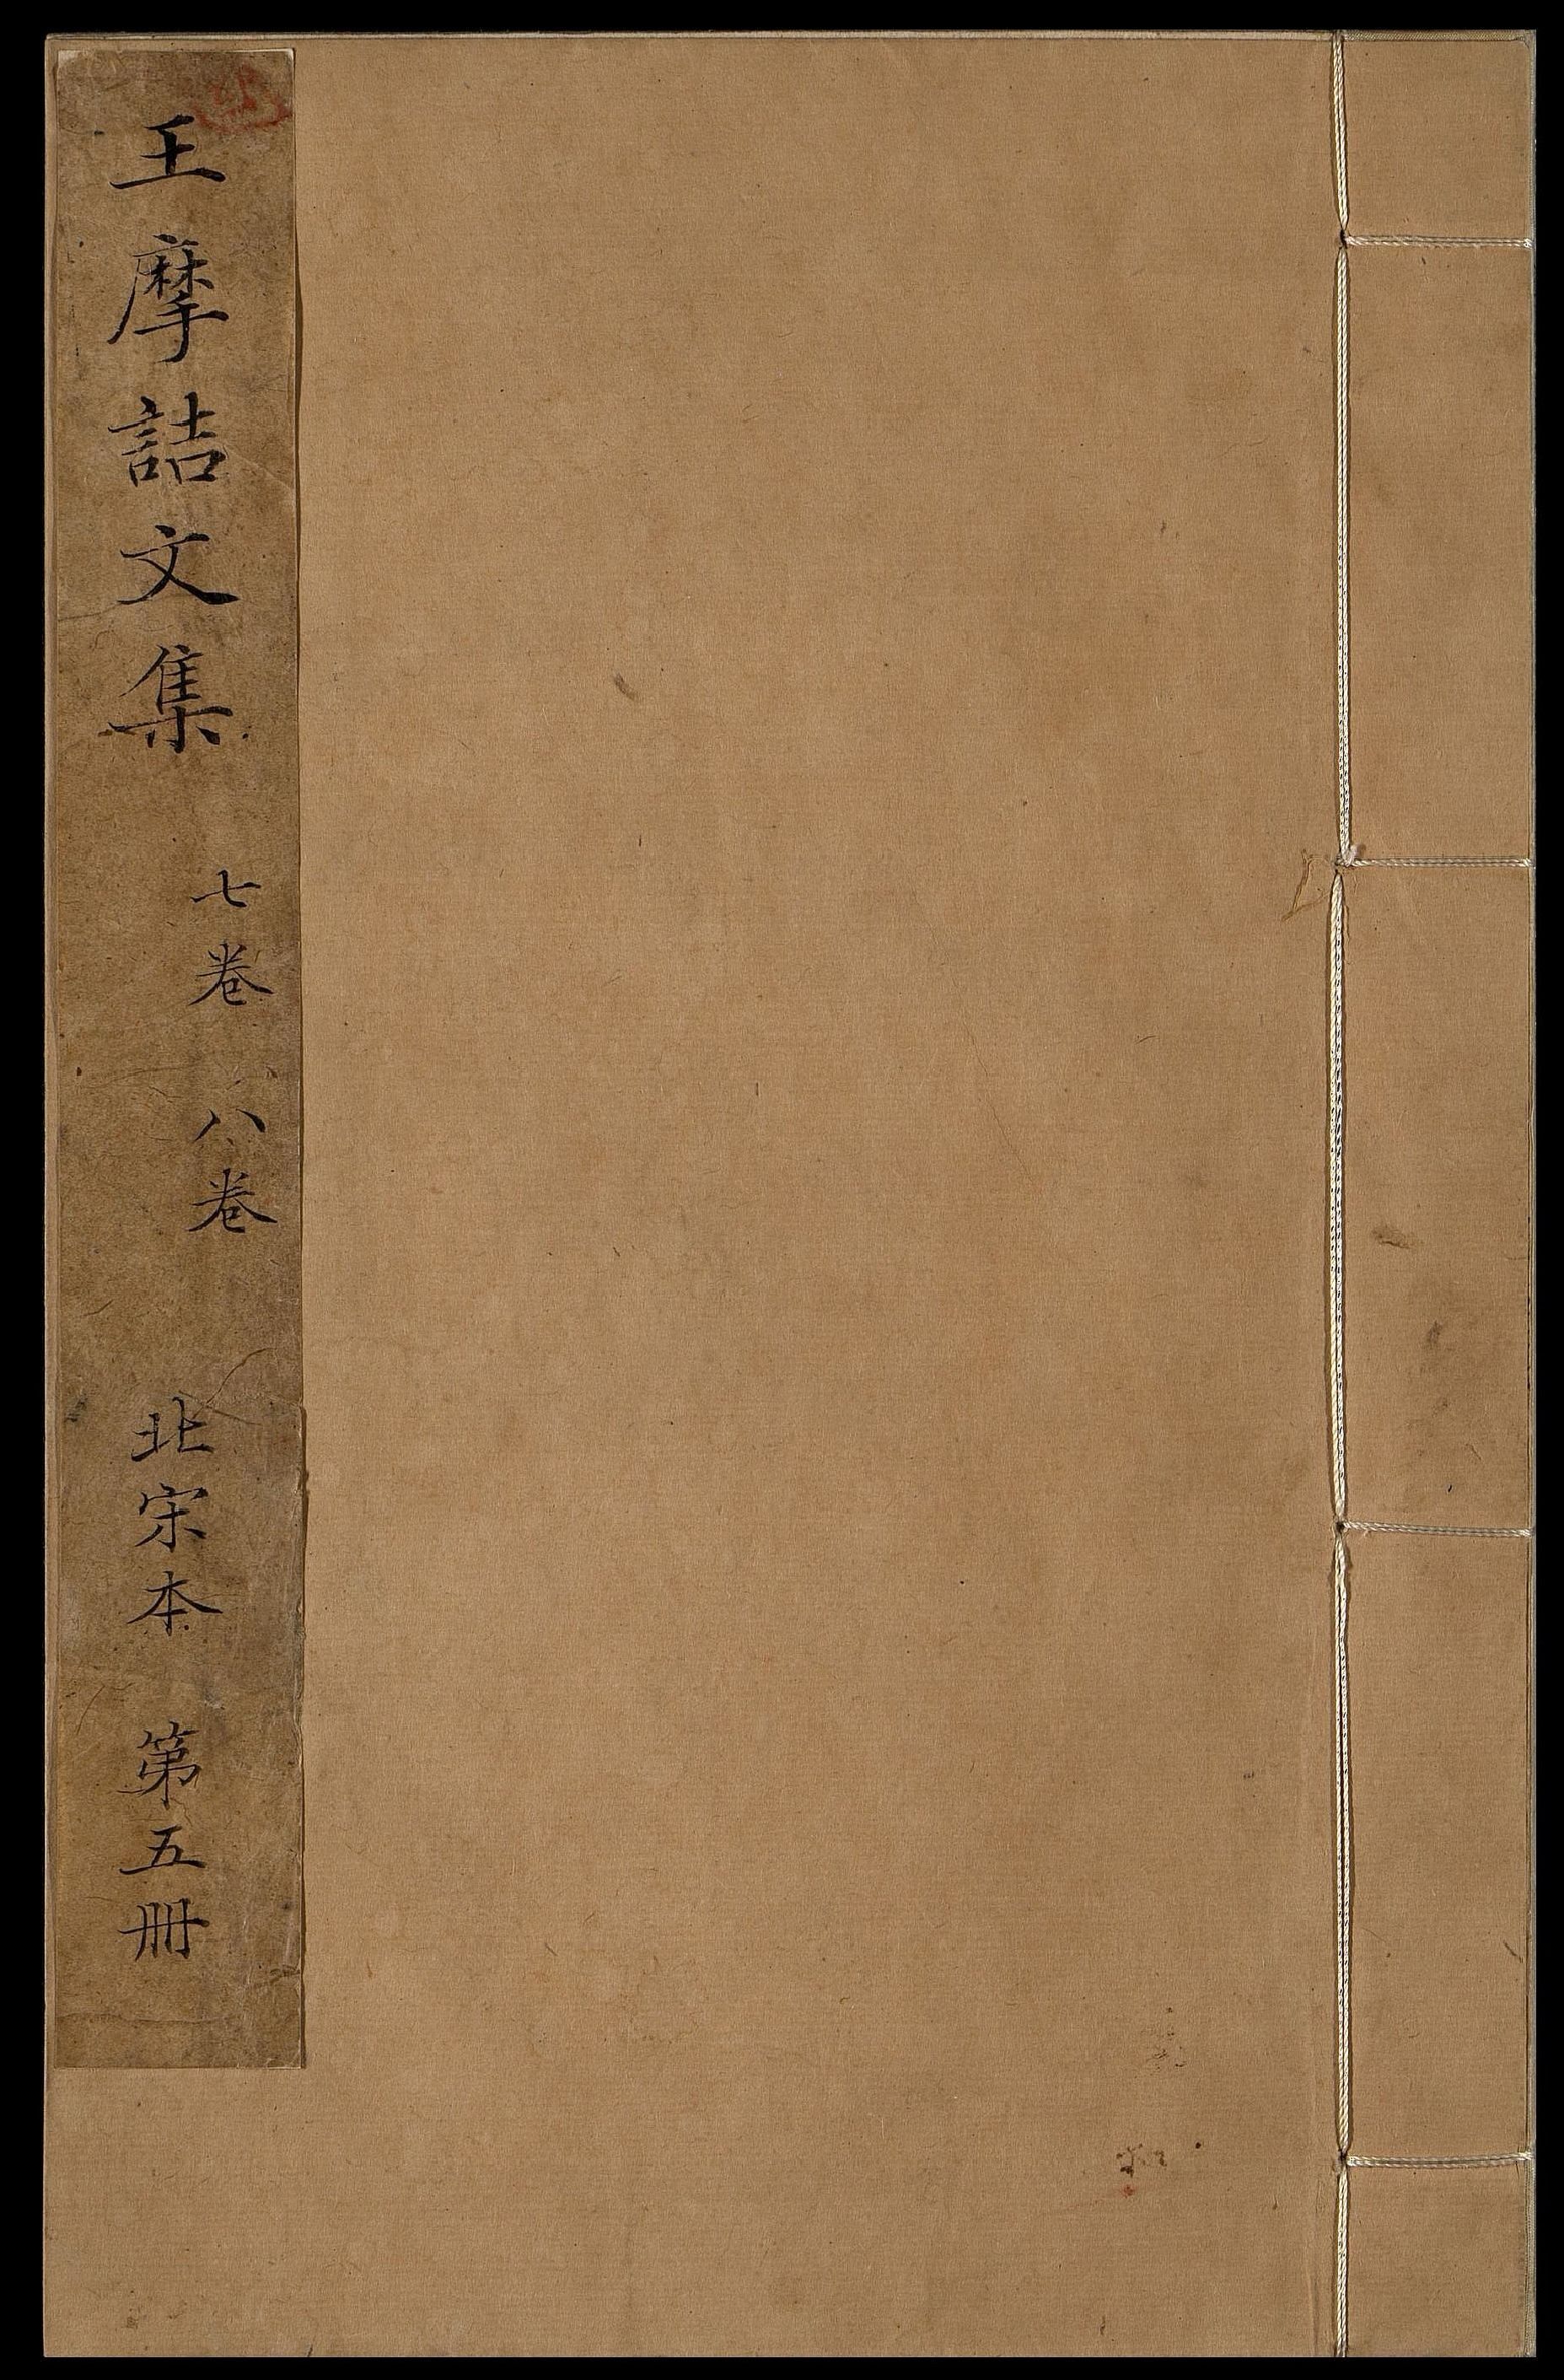 王摩詰文集
七卷 八卷
北宋本 第五冊